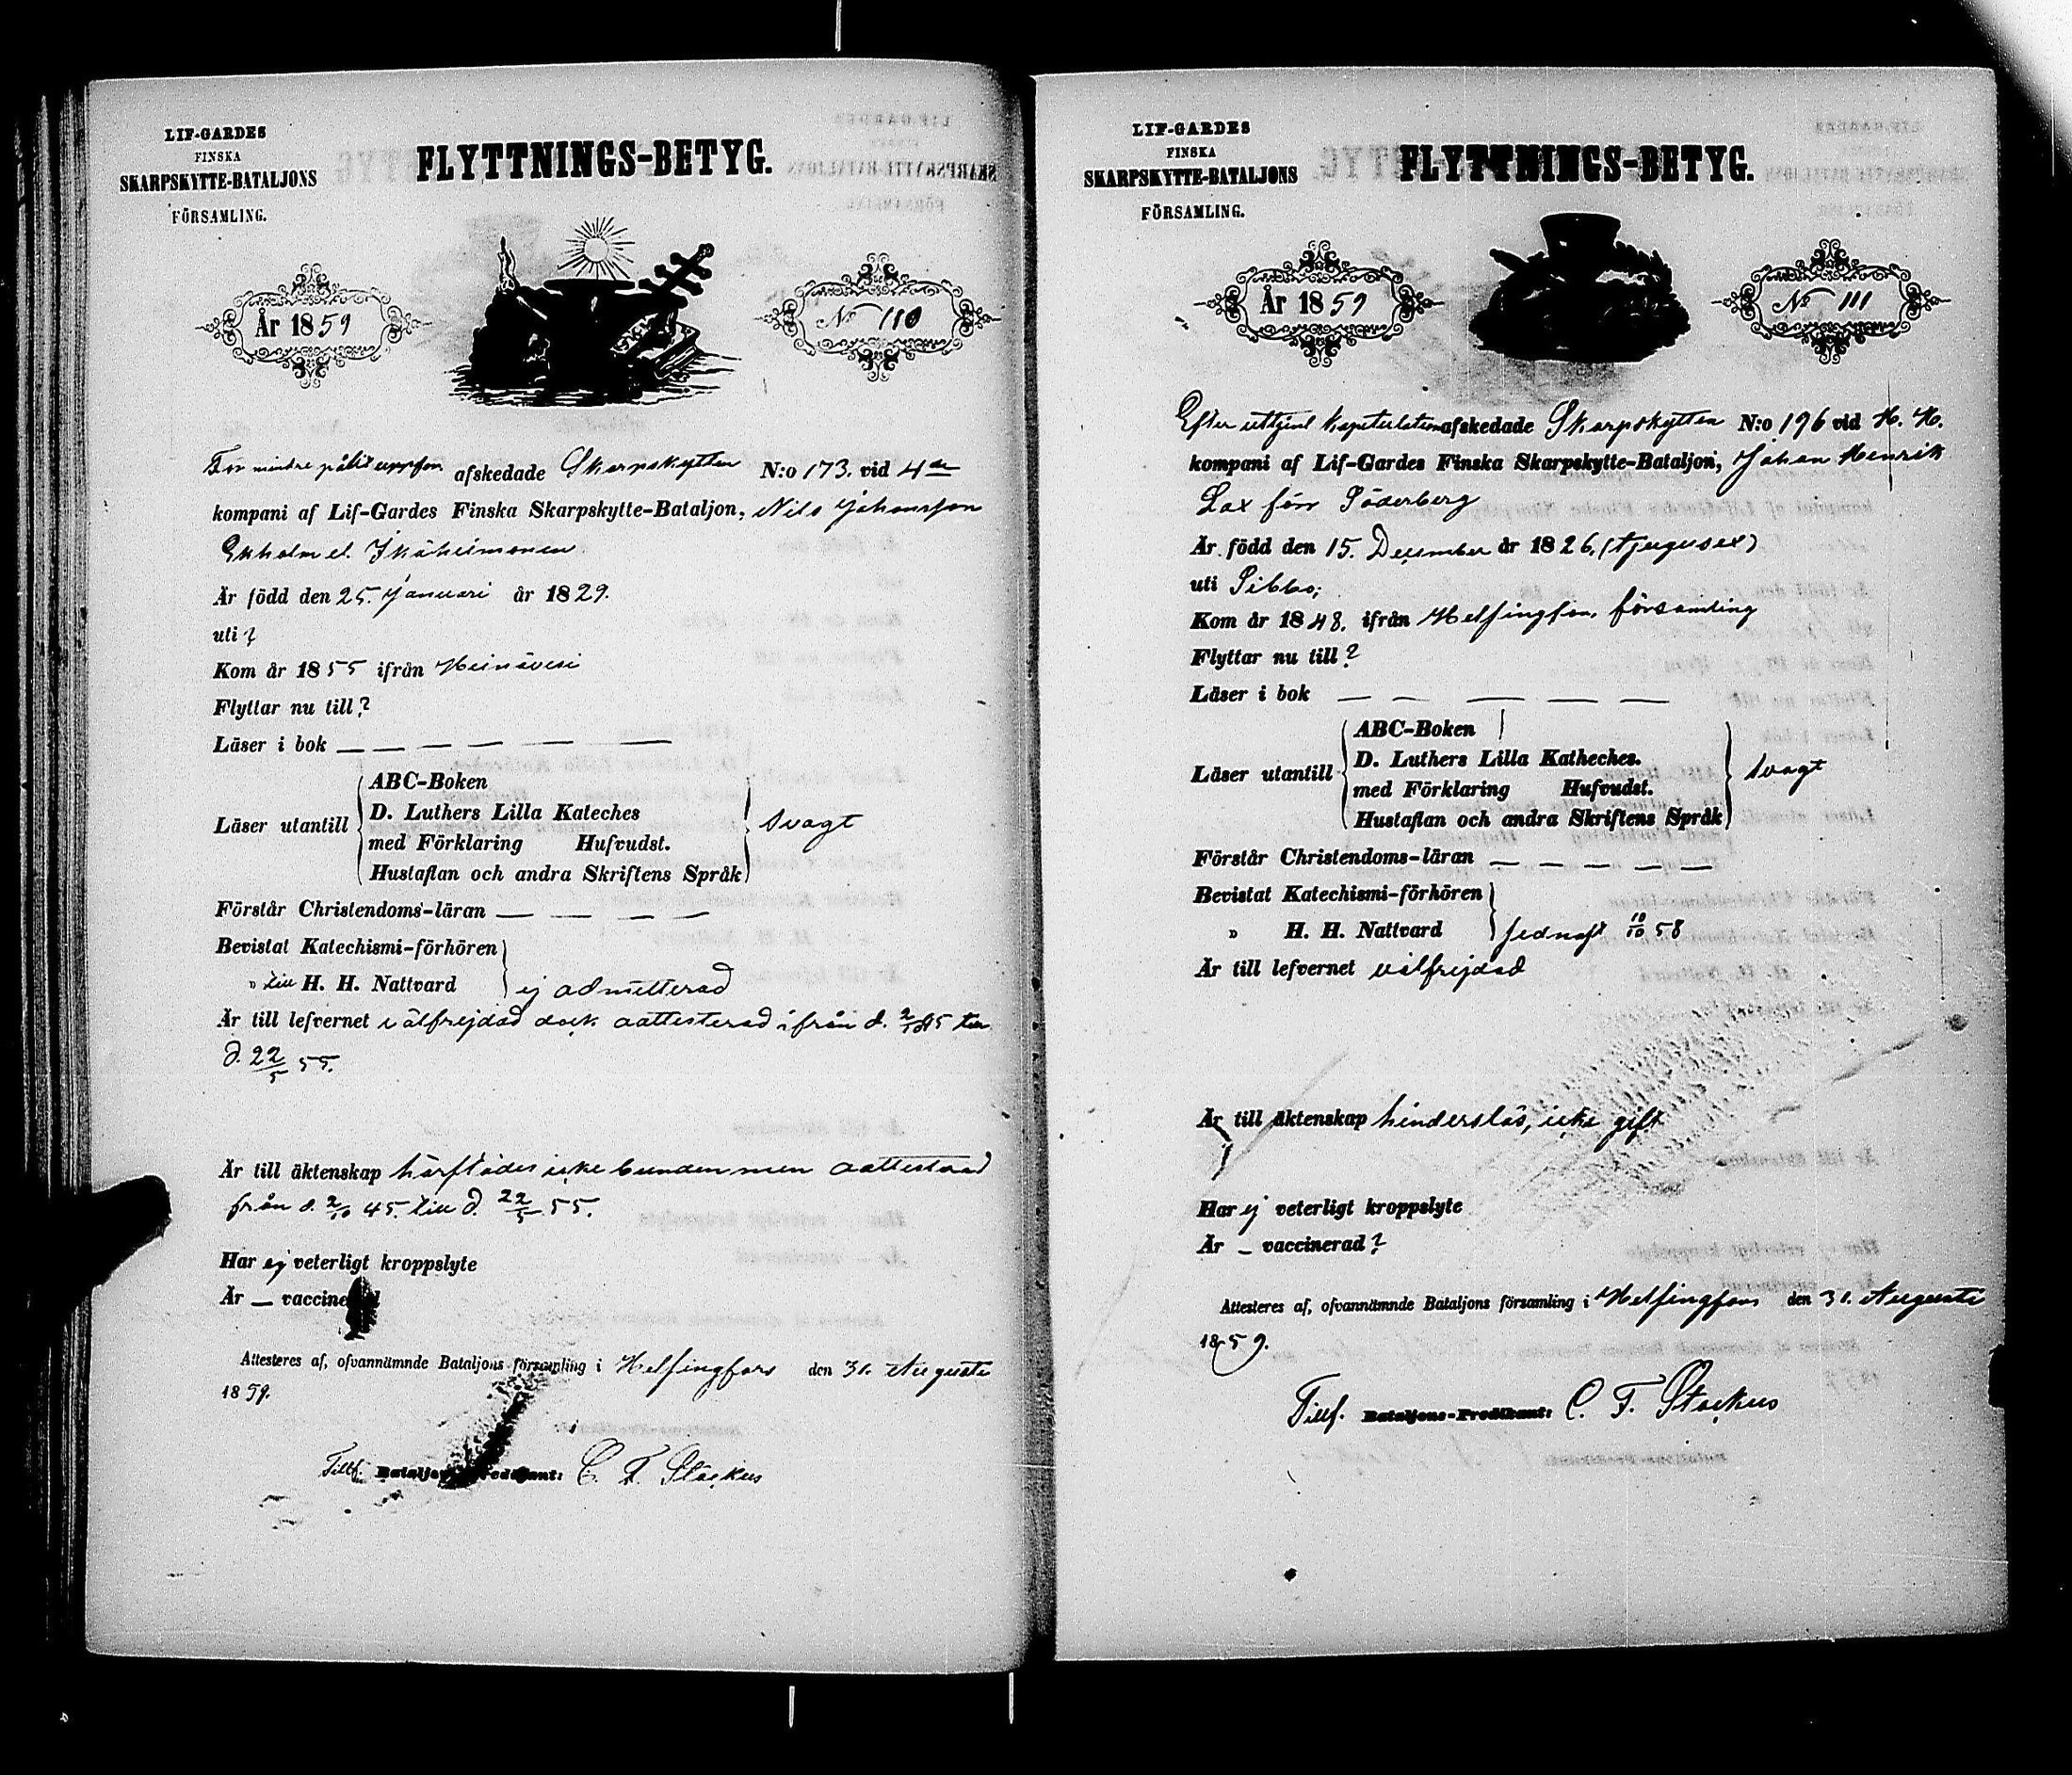 LIF-GARDES
FINSKA
SKARPSKYTTE-BATALJONS
FÖRSAMLING.
FLYTTNINGS-BETYG.
År 1859
No 110
För mindre pålit. uppför. afskedade Skarpskytten N:o 173. vid 4de
kompani af Lif-Gardes Finska Skarpskytte-Bataljon, Nils Johansson
Ekholm el. Ikäheimonen
Är född den 25. Januari år 1829.
uti ?
Kom år 1855 ifrån Heinävesi
Flyttar nu till ?
Läser i bok — — — — — —
Läser utantill
ABC-Boken
D. Luthers Lilla Kateches
med Förklaring Hufvudst.
Hustaflan och andra Skriftens Språk
svagt
Förstår Christendoms-läran — — — —
Bevistat Katechismi-förhören
" till H. H. Nattvard
ej admitterad
Är till lefvernet välfrejdad dock oattesterad ifrån d. 2/10 45 till
d. 22/5 55.
Är till äktenskap härstädes icke bunden men oattesterad
från d. 2/10 45. till d. 22/5 55.
Har ej veterligt kroppslyte
Är — vaccinerad
Attesteres af, ofvannämnde Bataljons församling i Helsingfors den 31. Augusti
1859.
Tillf. Bataljons-Predikant: C. F. Stockus
LIF-GARDES
FINSKA
SKARPSKYTTE-BATALJONS
FÖRSAMLING.
FLYTTNINGS-BETYG.
År 1859
No 111
Efter uttjent kapitulation afskedade Skarpskytten N:o 196 vid H. H.
kompani af Lif-Gardes Finska Skarpskytte-Bataljon, Johan Henrik
Lax förr Söderberg
Är född den 15. December år 1826. (tjugusex)
uti Sibbo;
Kom år 1848. ifrån Helsingfors församling
Flyttar nu till ?
Läser i bok — — — — —
Läser utantill
ABC-Boken
D. Luthers Lilla Katheches.
med Förklaring Hufvudst.
Hustaflan och andra Skriftens Språk
svagt
Förstår Christendoms-läran — — — — —
Bevistat Katechismi-förhören
" H. H. Nattvard
sednast 10/10 58
Är till lefvernet välfrejdad
Är till äktenskap hinderslös, icke gift
Har ej veterligt kroppslyte
Är — vaccinerad ?
Attesteres af, ofvannämnde Bataljons församling i Helsingfors den 31. Augusti
1859.
Tillf. Bataljons-Predikant: C. F. Stockus